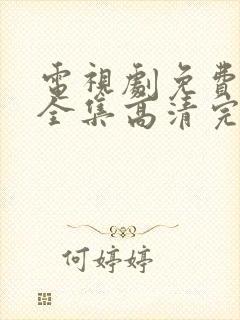 電視劇免費
全集高清完
何婷婷